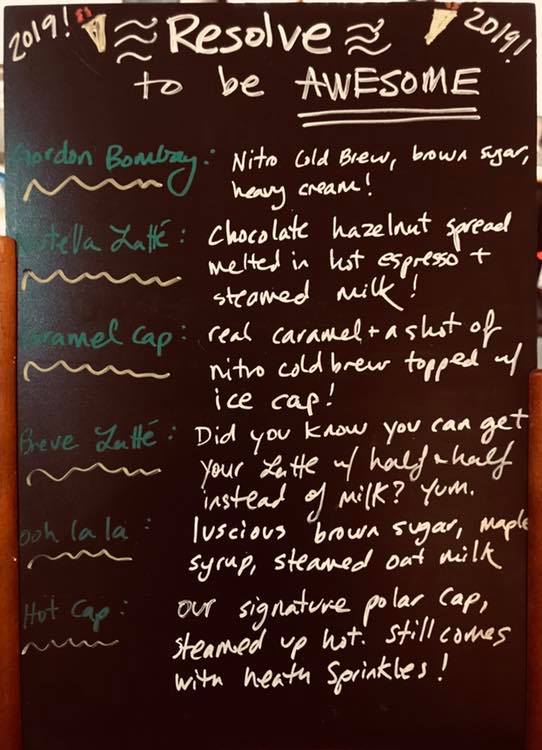 2019! Resolve 2019!
to be AWESOME
Gordon Bombay: Nitro Cold Brew, brown sugar,
heavy cream!
Nutella Latté: Chocolate hazelnut spread
melted in hot espresso +
steamed milk!
Caramel Cap: real caramel + a shot of
nitro cold brew topped w/
ice cap!
Breve Latté: Did you know you can get
your Latte w/ half & half
instead of milk? Yum.
ooh la la: luscious brown sugar, maple
syrup, steamed oat milk
Hot Cap: our signature polar cap,
steamed up hot. Still comes
with heath sprinkles!